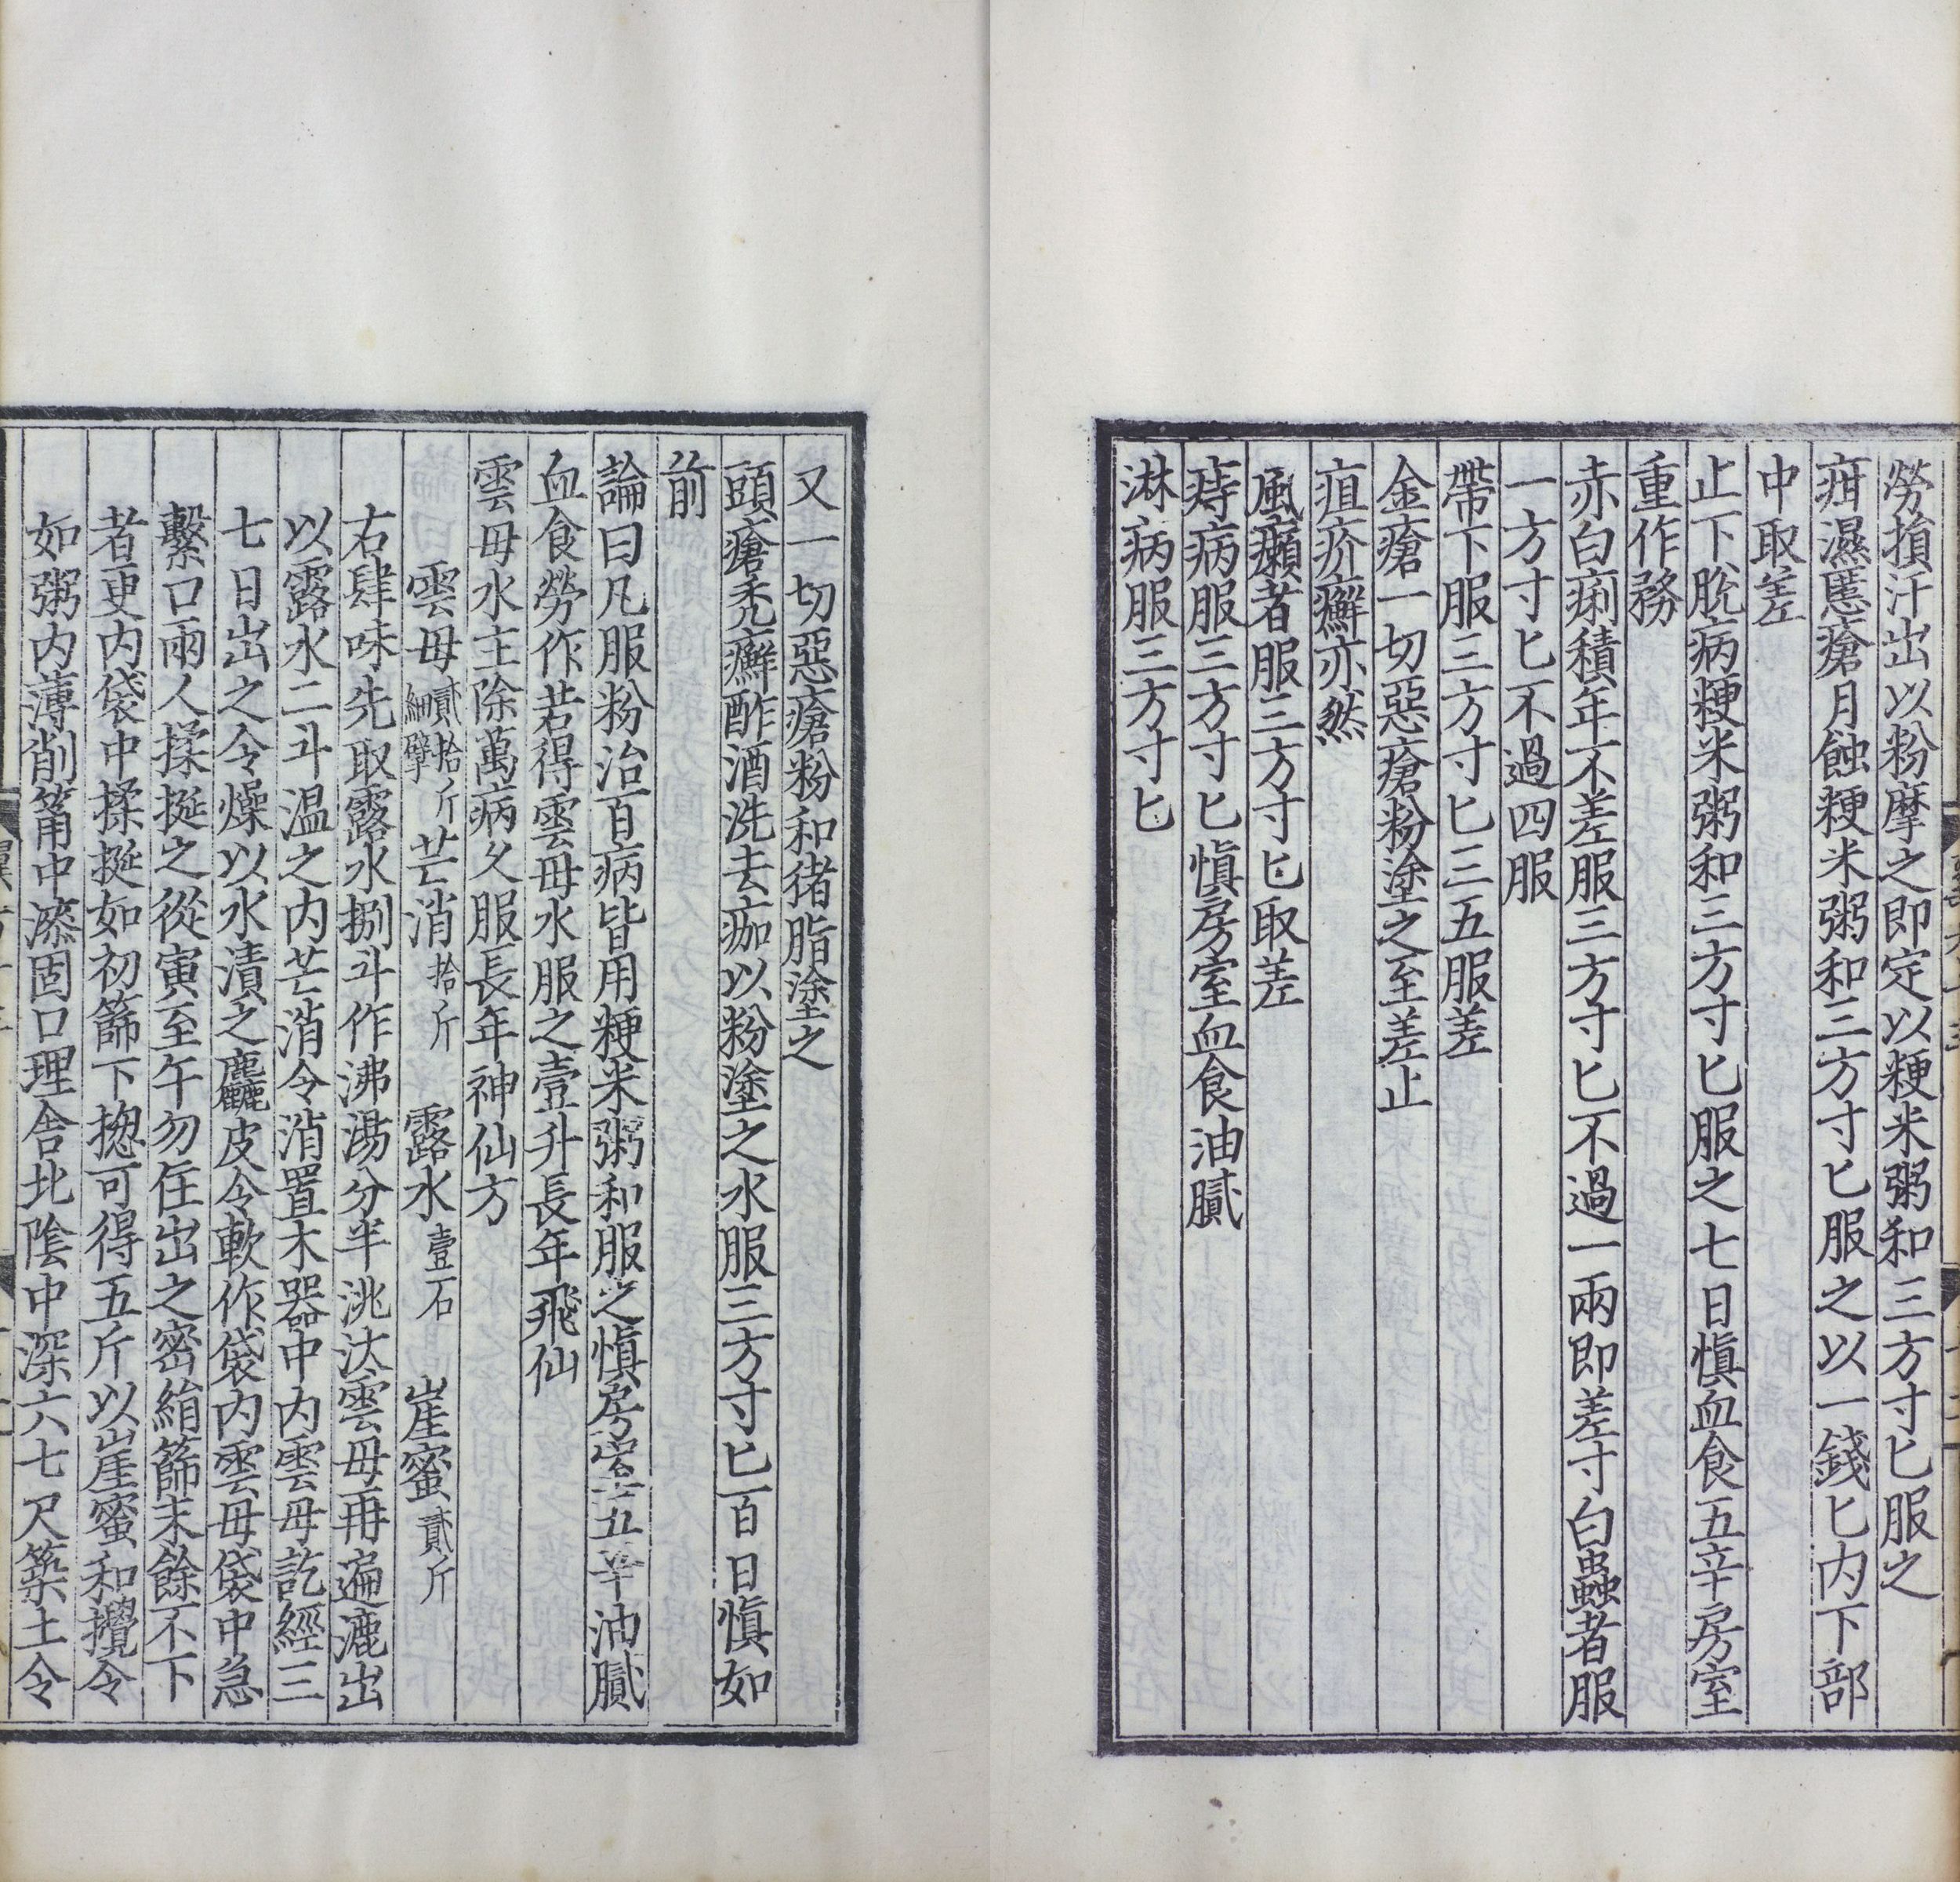 勞損汗出以粉摩之即定以粳米粥和三方寸匕服之
疳濕䘌瘡月蝕粳米粥和三方寸匕服之以一錢匕内下部
中取差
止下脫病粳米粥和三方寸匕服之七日慎血食五辛房室
重作務
赤白痢積年不差服三方寸匕不過一兩即差寸白蟲者服
一方寸匕不過四服
帶下服三方寸匕三五服差
金瘡一切惡瘡粉塗之至差止
疽疥癬亦然
風癩者服三方寸匕取差
痔病服三方寸匕慎房室血食油膩
淋病服三方寸匕
又一切惡瘡粉和猪脂塗之
頭瘡禿癬酢酒洗去痂以粉塗之水服三方寸匕百日慎如
前
論曰凡服粉治百病皆用粳米粥和服之慎房室五辛油膩
血食勞作若得雲母水服之壹升長年飛仙
雲母水主除萬病久服長年神仙方
雲母貳拾斤細擘 芒消拾斤 露水壹石 崖蜜貳斤
右肆味先取露水捌斗作沸湯分半洮汰雲母再遍漉出
以露水二斗温之内芒消令消置木器中内雲母訖經三
七日出之令燥以水漬之麤皮令軟作袋内雲母袋中急
繫口兩人揉挻之從寅至午勿住出之密絹篩末餘不下
者更内袋中揉挻如初篩下揔可得五斤以崖蜜和攪令
如粥内薄削筩中漆固口理舎北陰中深六七尺築土令